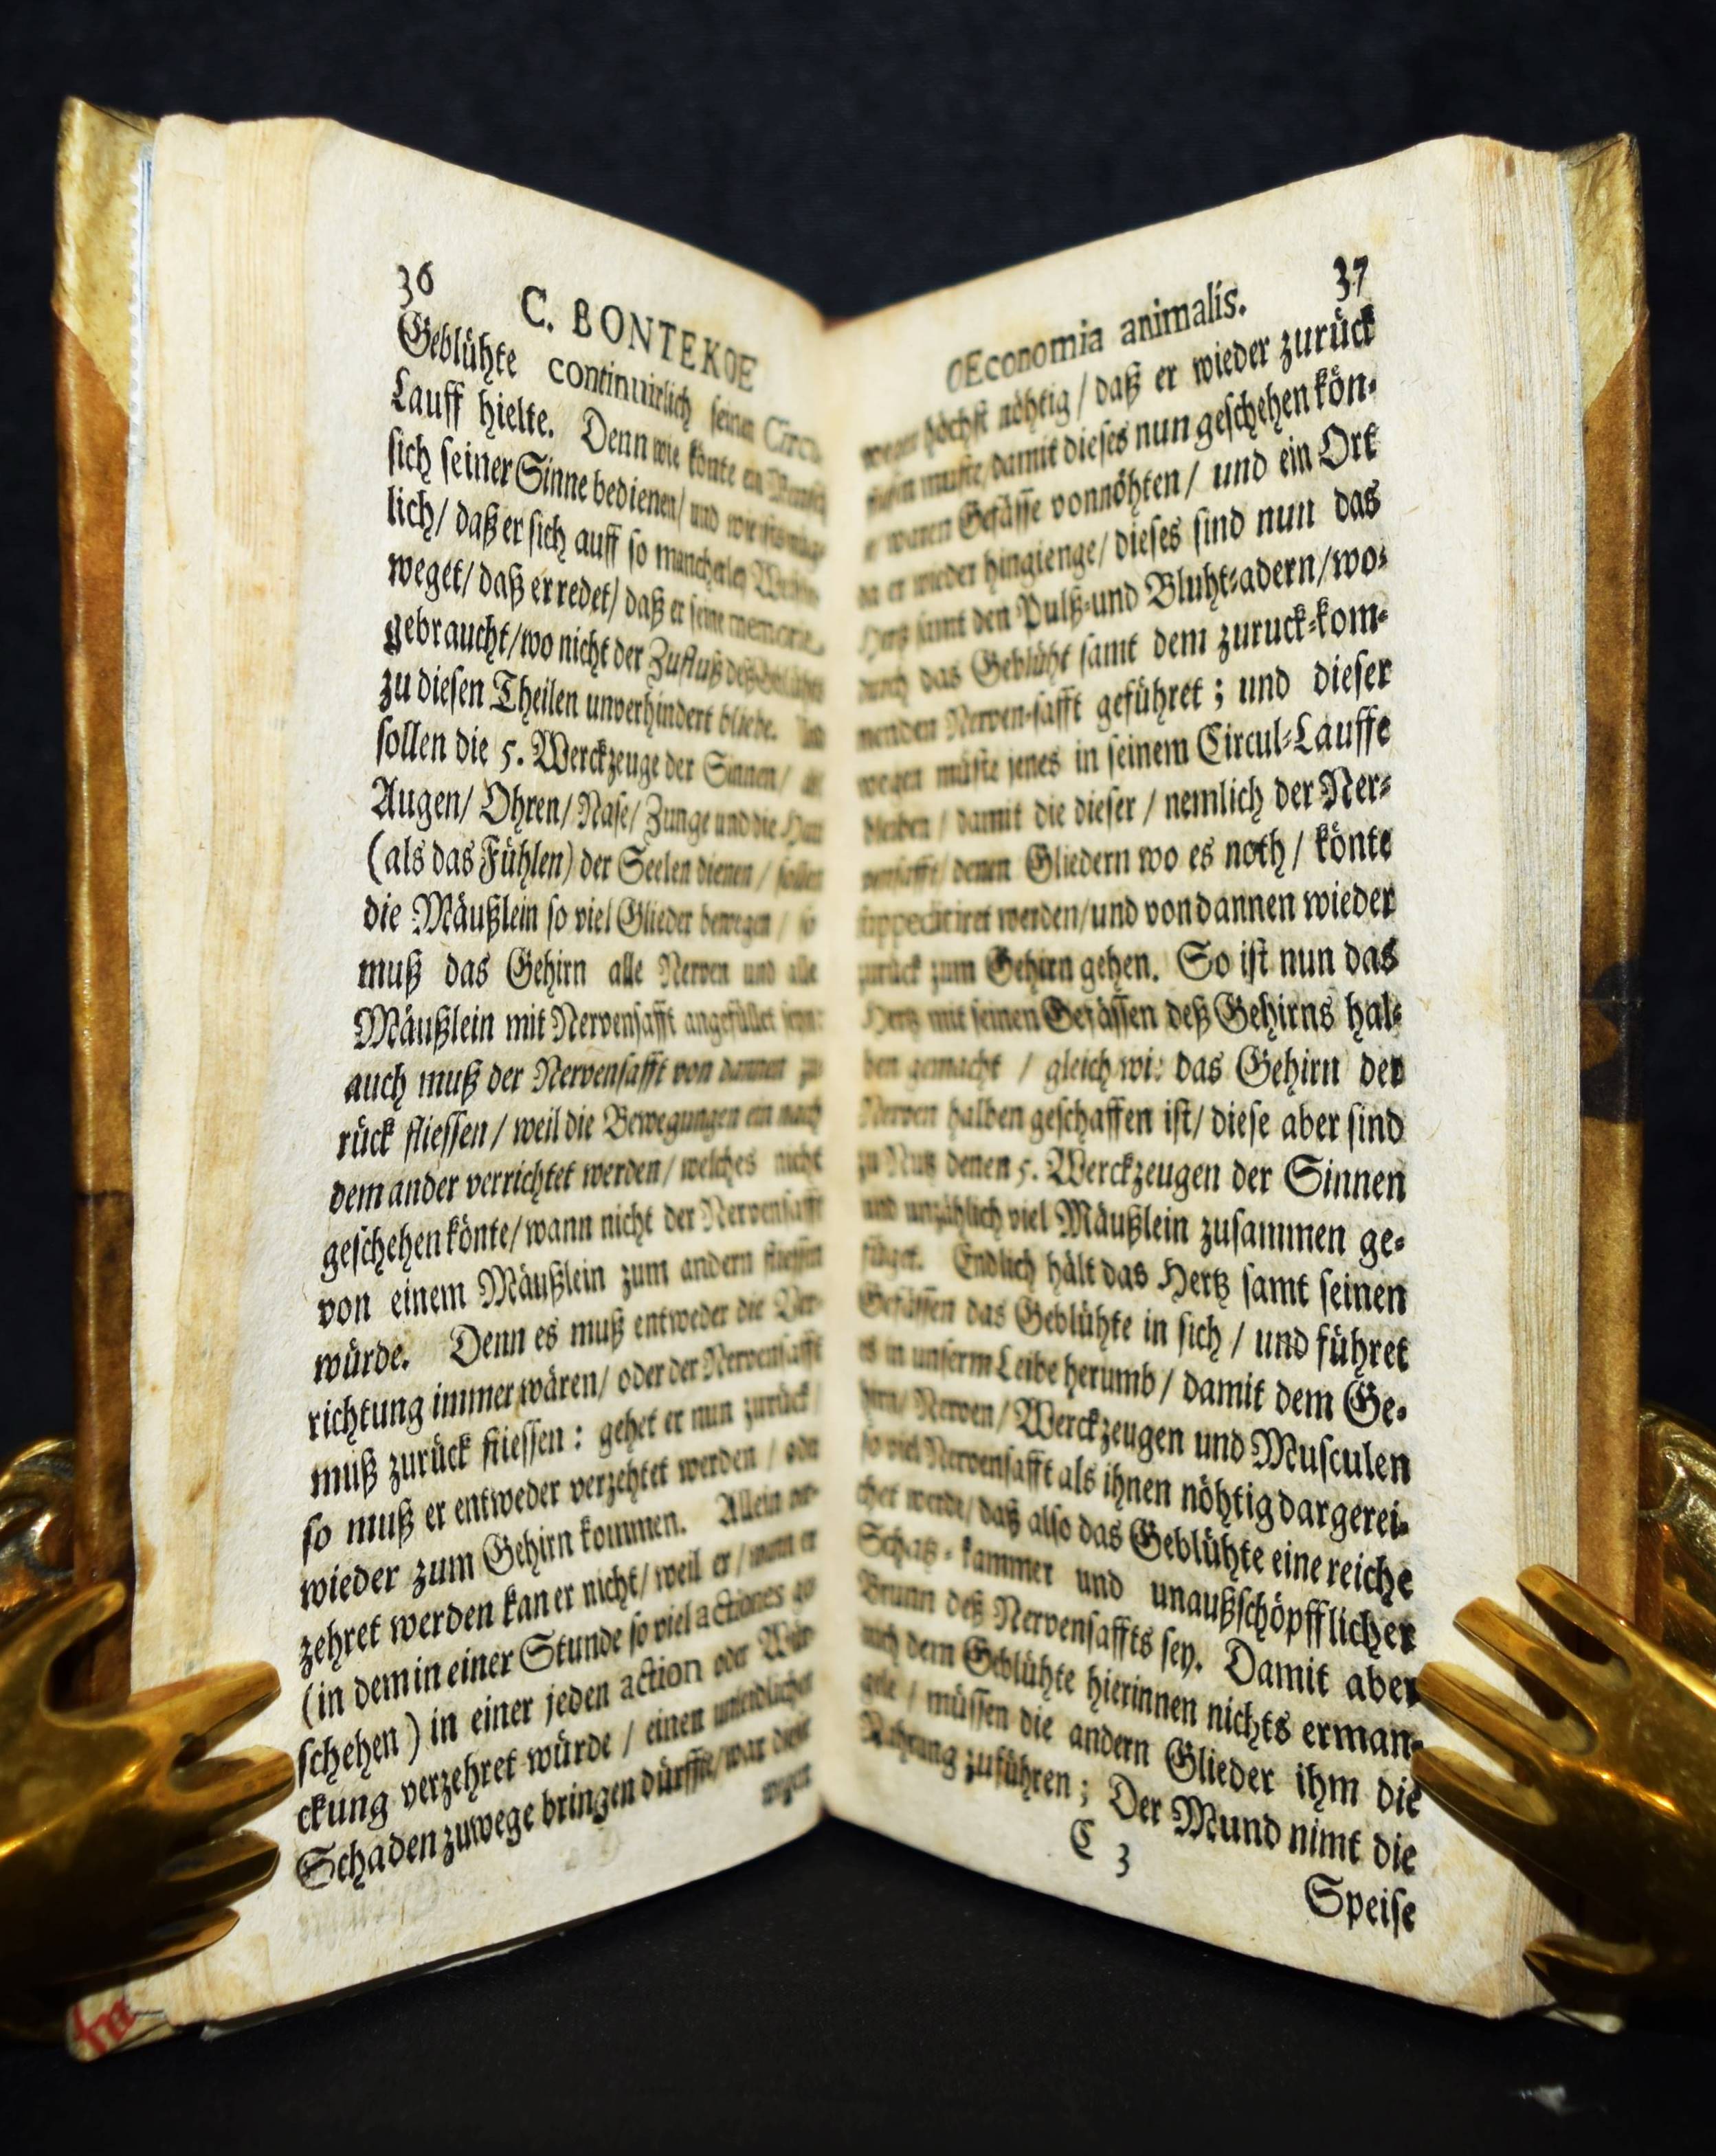 36
C. BONTEKOE
Geblühte continuirlich seinen Circu-
Lauff hielte. Denn wie könte ein Mensch
sich seiner Sinne bedienen/ und wie ists müg-
lich/ daß er sich auff so mancherley
weget/ daß er redet/ daß er seine memorie
gebraucht/wo nicht der Zufluß deß Geblühts
zu diesen Theilen unverhindert bliebe.
sollen die 5. Werckzeuge der Sinnen/
Augen/ Ohren/ Nase/ Zunge und die Haut
(als das Fühlen) der Seelen dienen / sollen
die Mäußlein so viel Glieder bewegen / so
muß das Gehirn alle Nerven und alle
Mäußlein mit Nervensafft angefüllet seyn:
auch muß der Nervensafft von dannen zu
rück fliessen / weil die Bewegungen ein nach
dem ander verrichtet werden/ welches nicht
geschehen könte/ wann nicht der Nervensafft
von einem Mäußlein zum andern fliessen
würde. Denn es muß entweder die Ver-
richtung immer wären/ oder der Nervensafft
muß zurück fliessen: gehet er nun zurück/
so muß er entweder verzehtet werden / oder
wieder zum Gehirn kommen. Allein ver-
zehret werden kan er nicht/ weil er / wann er
(in dem in einer Stunde so viel actiones ge
schehen) in einer jeden action oder Wür-
ckung verzehret würde / einen unendlichen
Schaden zuwege bringen dürffte/ war dieses
wegen
37
OEconomia animalis.
wegen höchst nöhtig / daß er wieder zurück
fliessen muste/ damit dieses nun geschehen kön-
e waren Gefässe vonnöhten/ und ein Ort
da er wieder hingienge/ dieses sind nun das
Hertz samt den Pulß-und Bluht-adern/wo-
durch das Geblüht samt dem zuruck-kom-
menden Nerven-safft geführet; und dieser
wegen müste jenes in seinem Circul-Lauffe
bleiben / damit die dieser / nemlich der Ner-
vensafft/ denen Gliedern wo es noth / könte
suppeditiret werden/und von dannen wieder
zurück zum Gehirn gehen. So ist nun das
Hertz mit seinen Gefässen deß Gehirns hal-
ben gemacht / gleich wie das Gehirn der
Nerven halben geschaffen ist/ diese aber sind
zu Nutz denen 5. Werckzeugen der Sinnen
und unzählich viel Mäußlein zusammen ge-
füget. Endlich hält das Hertz samt seinen
Gefässen das Geblühte in sich / und führet
es in unserm Leibe herumb / damit dem Ge-
hirn/ Nerven / Werckzeugen und Musculen
so viel Nervensafft als ihnen nöhtig dargerei-
chet werde/ daß also das Geblühte eine reiche
Schatz-kammer und unaußschöpfflicher
Brunn deß Nervensaffts sey. Damit aber
auch dem Geblühte hierinnen nichts erman-
gele / müssen die andern Glieder ihm die
Nahrung zuführen; Der Mund nimt die
C 3
Speise